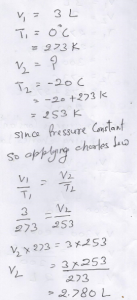 V₁ = 3 L
T₁ = 0°C
= 273 K
V₂ = ?
T₂ = -20 C
= -20+273K
= 253 K
since Pressure Constant
so applying charles law
V₁/T₁ = V₂/T₂
3/273 = V₂/253
V₂ × 273 = 3 × 253
V₂ = 3 × 253/273
= 2.780 L.